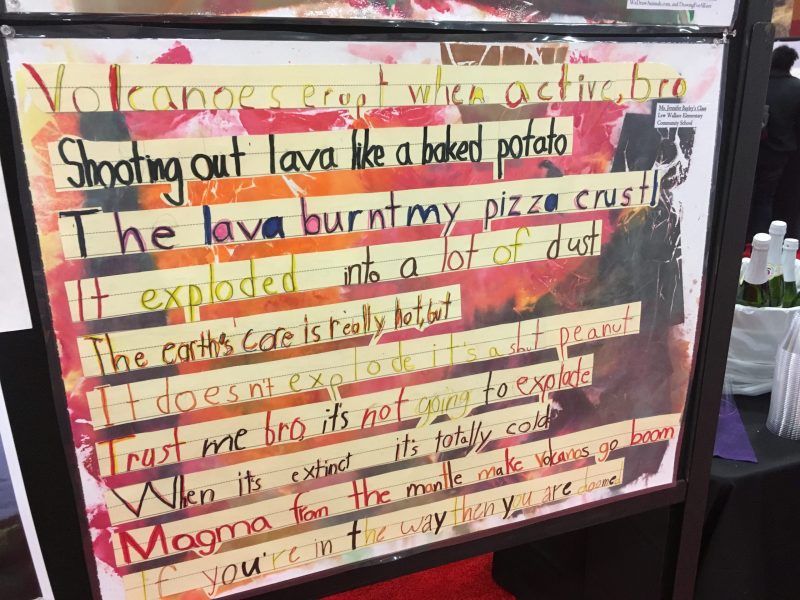 WeDrawAnimals.com, and DrawingForAll.net
Volcanoes erupt when active, bro
Ms. Jennifer Bagley's Class
Lew Wallace Elementary
Community School
Shooting out lava like a baked potato
The lava burnt my pizza crust!
It exploded into a lot of dust
The earth's core is really hot, but
It doesnt explode it's a shut peanut
Trust me bro, it's not going to explode
When its extinct it's totally cold
Magma from the mantle make volcanos go boom
If you're in the way then you are doomed